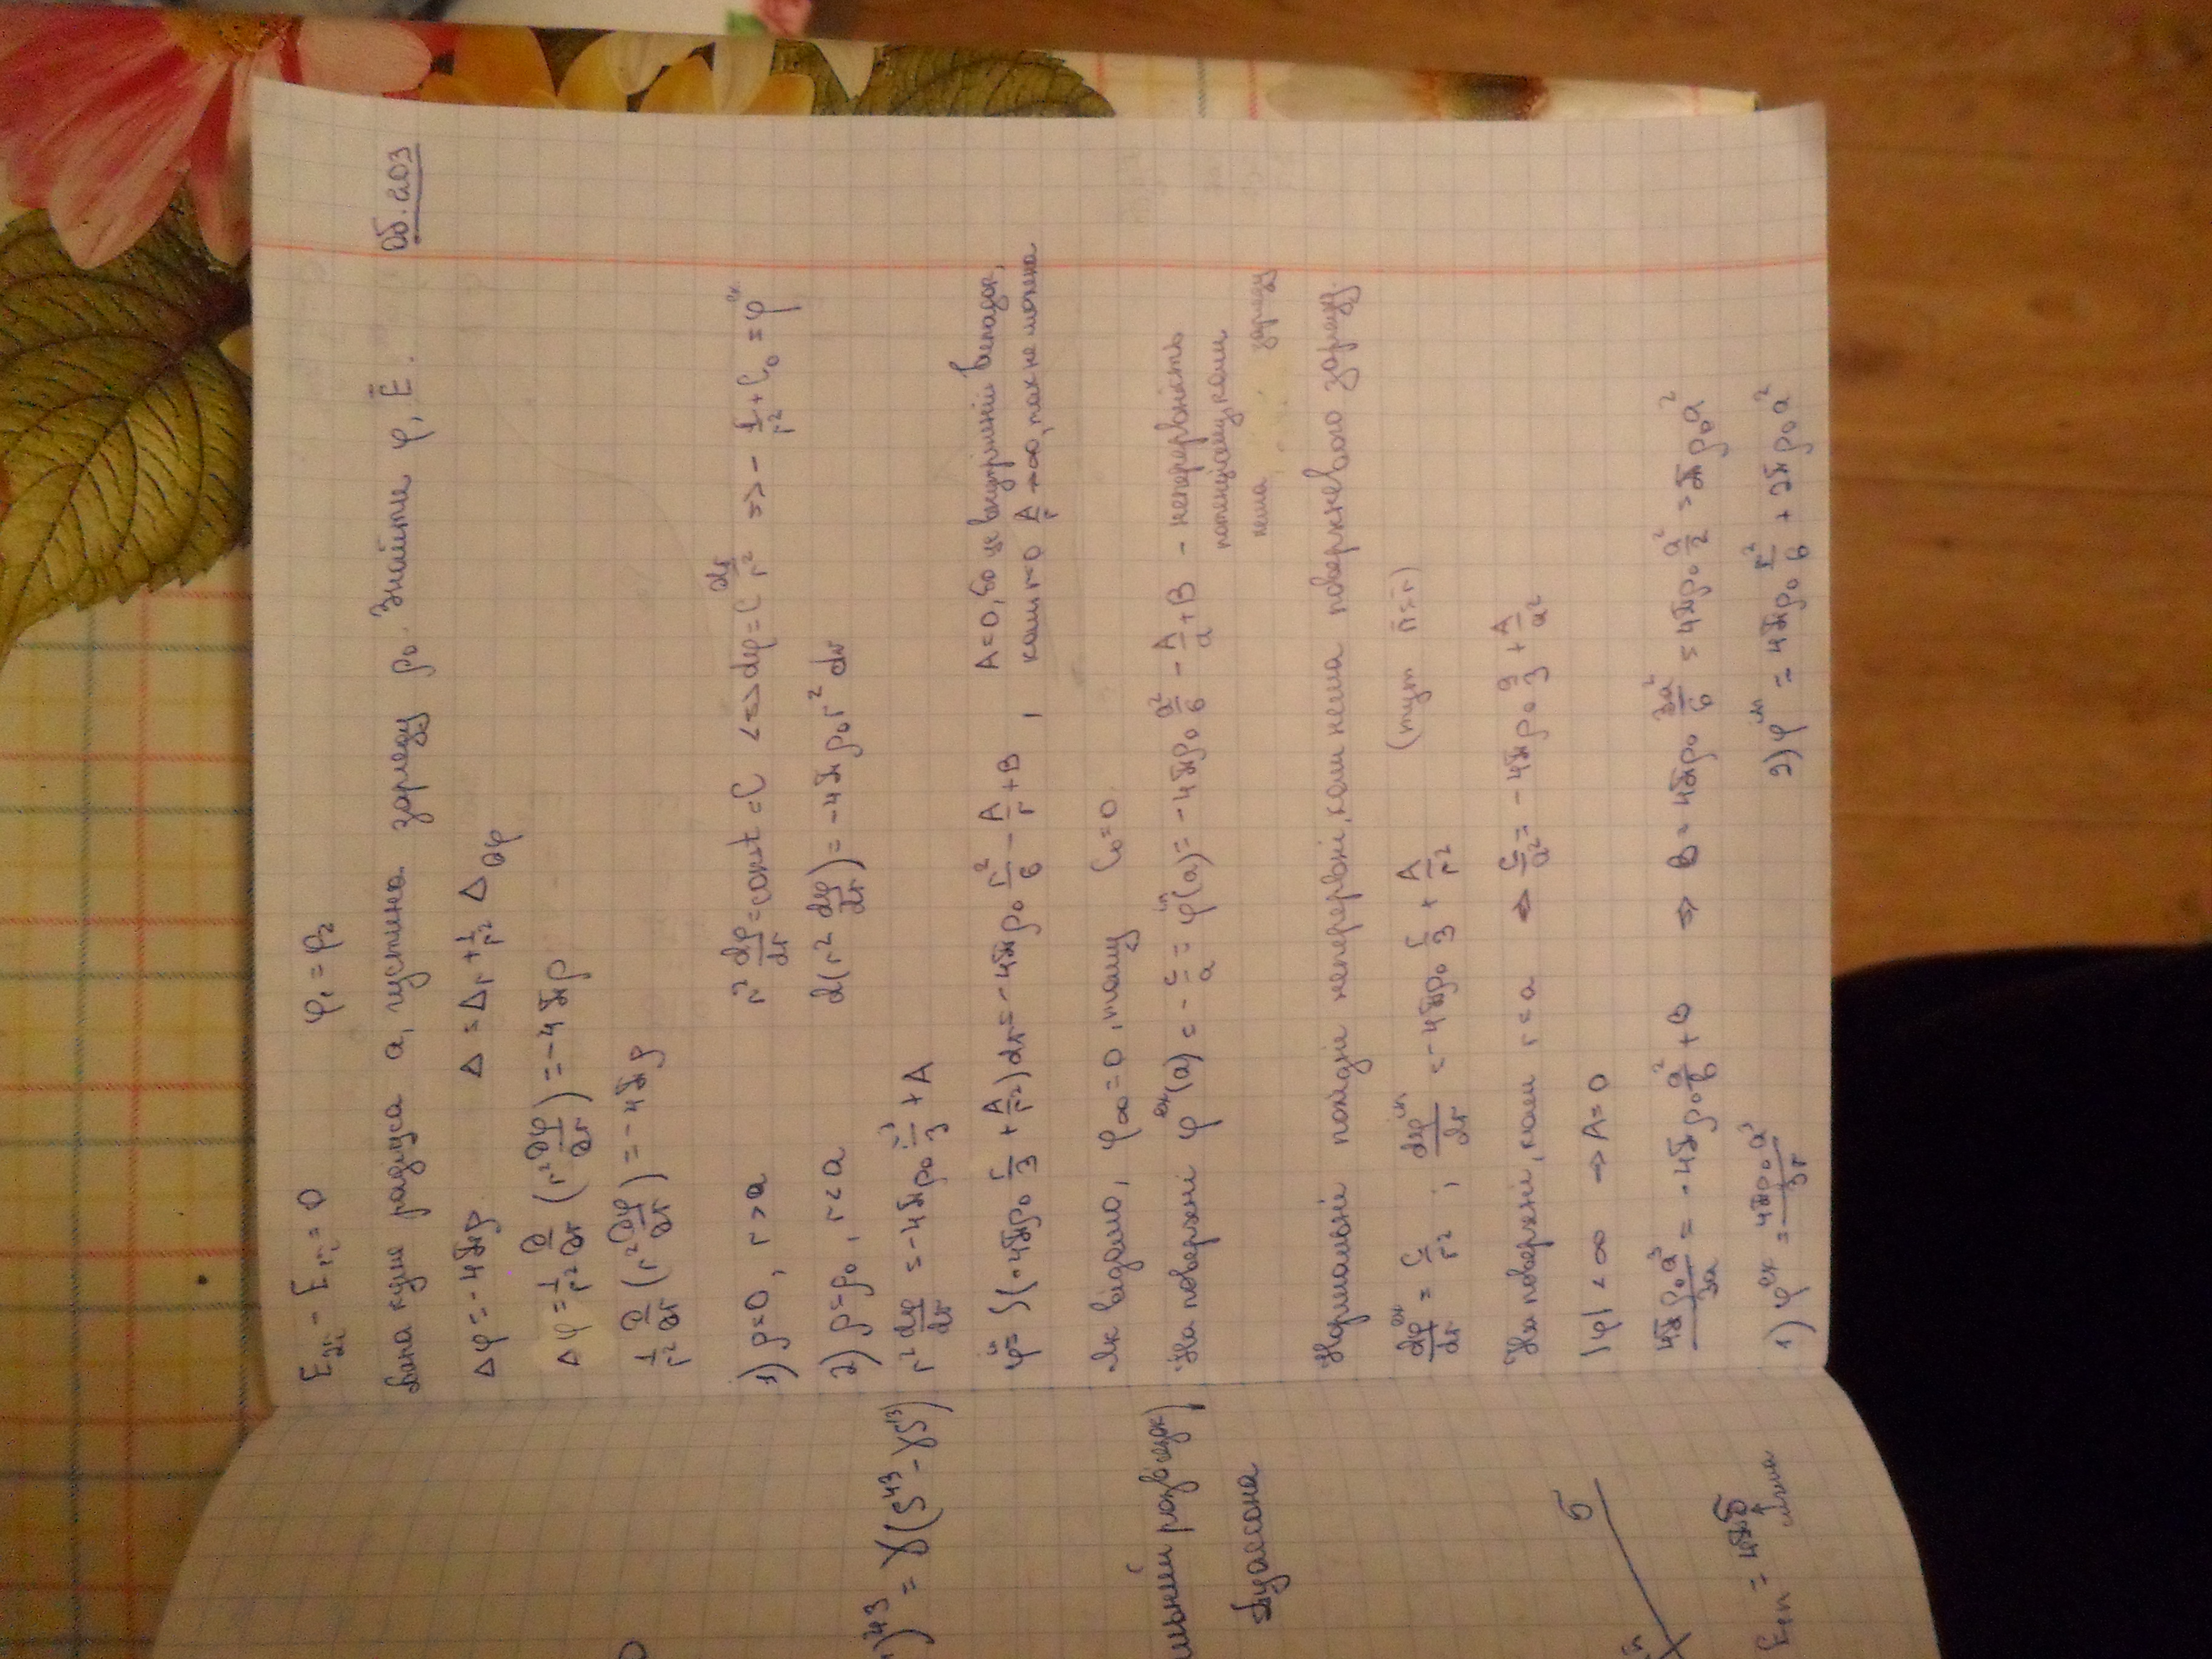 E₂τ - E₁τ = 0 φ₁ = φ₂
Дана куля радіуса a, густина заряду ρ₀. Знайти φ, E̅. Об. 203
Δφ = -4πρ Δ = Δr + 1/r² Δθφ
Δφ = 1/r² ∂/∂r (r² ∂φ/∂r) = -4πρ
1/r² ∂/∂r (r² ∂φ/∂r) = -4πρ
1) ρ=0, r>a r² dφ/dr = const = C <=> dφ = C dr/r² => - 1/r² + C₀ = φᵉˣ
2) ρ=ρ₀, r<a d(r² dφ/dr) = -4πρ₀r² dr
r² dφ/dr = -4πρ₀ r³/3 + A
φⁱⁿ = ∫(-4πρ₀ r/3 + A/r²)dr = -4πρ₀ r²/6 - A/r + B , A=0, бо це внутрішній випадок,
коли r=0 A/r → ∞, так не можна
Як відомо, φ∞ = 0, тому C₀=0.
На поверхні φᵉˣ(a) = - C/a = φⁱⁿ(a) = -4πρ₀ a²/6 - A/a + B - неперервність
потенціалу, коли
нема заряду
Нормальні похідні неперервні, коли нема поверхневого заряду.
dφᵉˣ/dr = C/r² ; dφⁱⁿ/dr = -4πρ₀ r/3 + A/r² (тут n̅=r̅)
На поверхні, коли r=a => C/a² = -4πρ₀ a/3 + A/a²
|φ| < ∞ → A=0
4πρ₀a³/3a = -4πρ₀ a²/6 + B => B = 4πρ₀ 3a²/6 = 4πρ₀ a²/2 = 2πρ₀a²
1) φᵉˣ = 4πρ₀a³/3r 2) φⁱⁿ = 4πρ₀ r²/6 + 2πρ₀a²
)⁴³ = γ(S⁴³ - γS¹³)
розв'язок
Пуассона
σ
E₁n = 4πσ